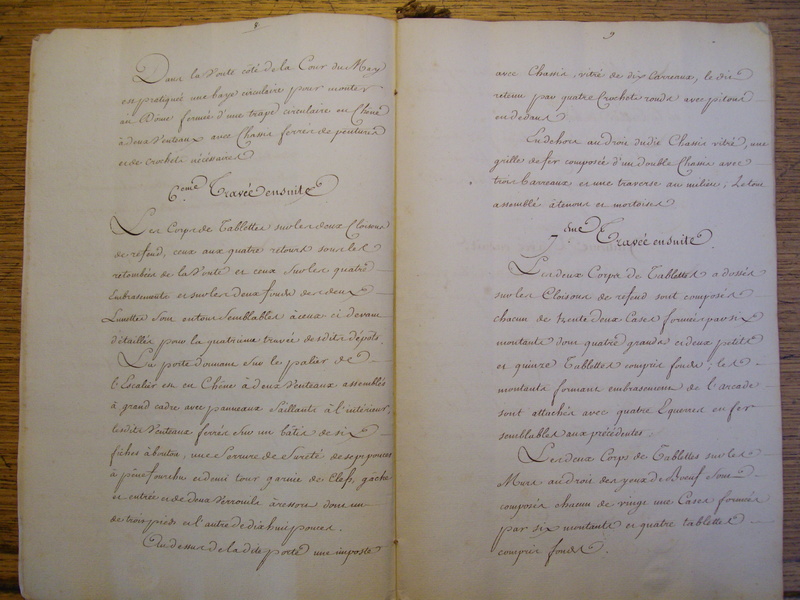 8
Dans la Voute côté de la Cour du May
est pratiquée une baye circulaire pour monter
au Dôme fermée d'une trape circulaire en Chêne
à deux Venteaux avec Chassis ferrés de pentures
et de crochets nécessaires
6.eme Travée ensuite
Les Corps de Tablettes sur les deux Cloisons
de refend, ceux aux quatre retours sous les
retombées de la Voute et ceux sur les quatre
Embrasements et sur les deux fonds des deux
Lunettes sont en tout semblables à ceux ci devant
détaillés pour la quatrième travée desdits dépôts.
La porte donnant sur le palier de
l'Escalier est en Chêne à deux Venteaux assemblés
à grand cadre avec panneaux saillants à l'intérieur,
lesdits Venteaux ferrés sur un bâtis de six
fiches à boutons, une Serrure de Sureté de sept pouces
à pêne fourchu et demi tour garnie de Clefs, gâche
et entrée et de deux Verrouils à ressorts dont un
de trois pieds et l'autre de dix huit pouces.
Au dessus de la dite porte une imposte
9
avec Chassis, vitré de dix Carreaux, le dit
retenu par quatre Crochets ronds avec pitons
en dedans
En dehors au droit dudit Chassis vitré, une
grille de fer composée d'un double Chassis avec
trois barreaux et une traverse au milieu; Le tout
assemblé à tenons et mortoises
7.eme Travée ensuite
Les deux Corps de Tablettes adossés
sur les Cloisons de refend sont composés
chacun de trente deux Cases formés par six
montants dont quatre grands et deux petits
et quinze Tablettes compris fonds; les
montants formant embrasement de l'arcade
sont attachés avec quatre Equerres en fer
semblables aux précédentes.
Les deux Corps de Tablettes sur les
Murs au droit des yeux de Boeuf sont
composés chacun de vingt une Cases formées
par six montants et quatre tablettes
compris fonds.